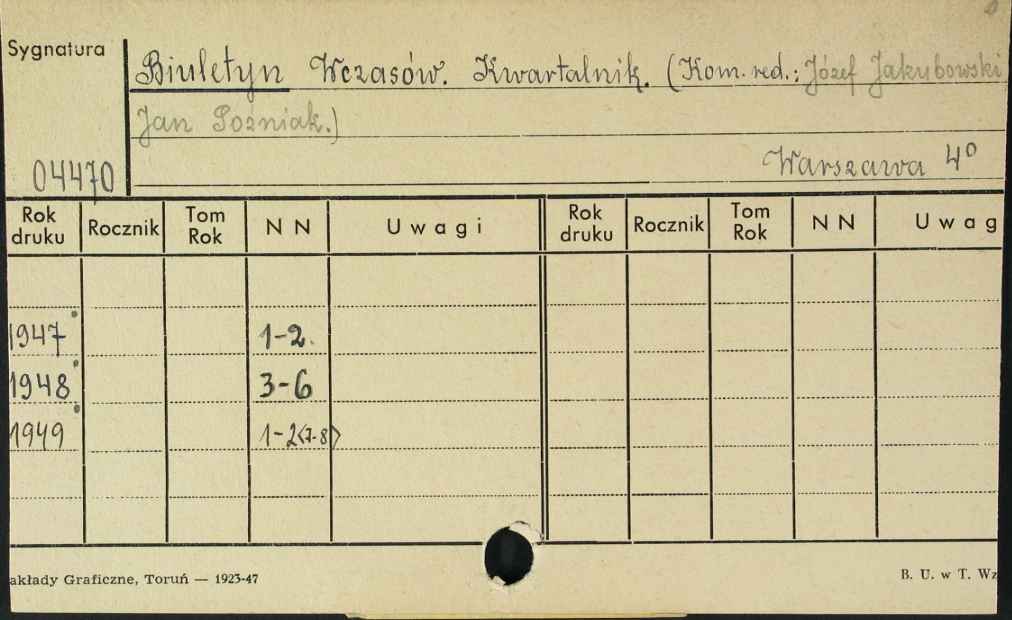 Sygnatura
Biuletyn Wczasów. Kwartalnik. (Kom. red.: Józef Jakubowski
Jan Poźniak.)
04470
Warszawa 4º
Rok druku Rocznik Tom Rok N N Uwagi Rok druku Rocznik Tom Rok N N Uwag
1947 1-2.
1948 3-6
1949 1-2<7-8>
akłady Graficzne, Toruń — 1923-47
B. U. w T. Wz